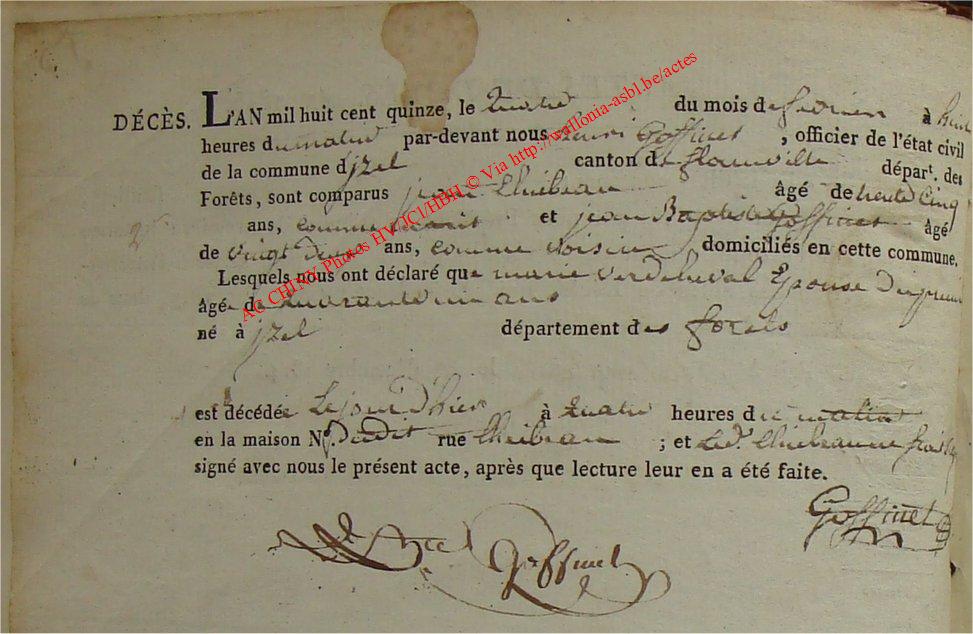 DÉCÈS. L'AN mil huit cent quinze, le quatre du mois de fevrier à huit
heures du matin par-devant nous henri Goffinet , officier de l'état civil
de la commune d'jzel canton de florenville départ. des
Forêts, sont comparus jean thiebeau âgé de trente Cinq
2
ans, comme et jean Baptiste Goffinet âgé
de vingt deux ans, comme voisin domiciliés en cette commune.
Lesquels nous ont déclaré que marie Epouse du premier
âgé de quarante un ans
né à jzel département des forets
est décédée Le jour d'hier à quatre heures du matin
en la maison N°. dudit rue thiebeau ; et Led. thiebeau
signé avec nous le présent acte, après que lecture leur en a été faite.
Goffinet
Goffinet
AC CHINY Photos HV/JCI/HBH © Via http://wallonia-asbl.be/actes